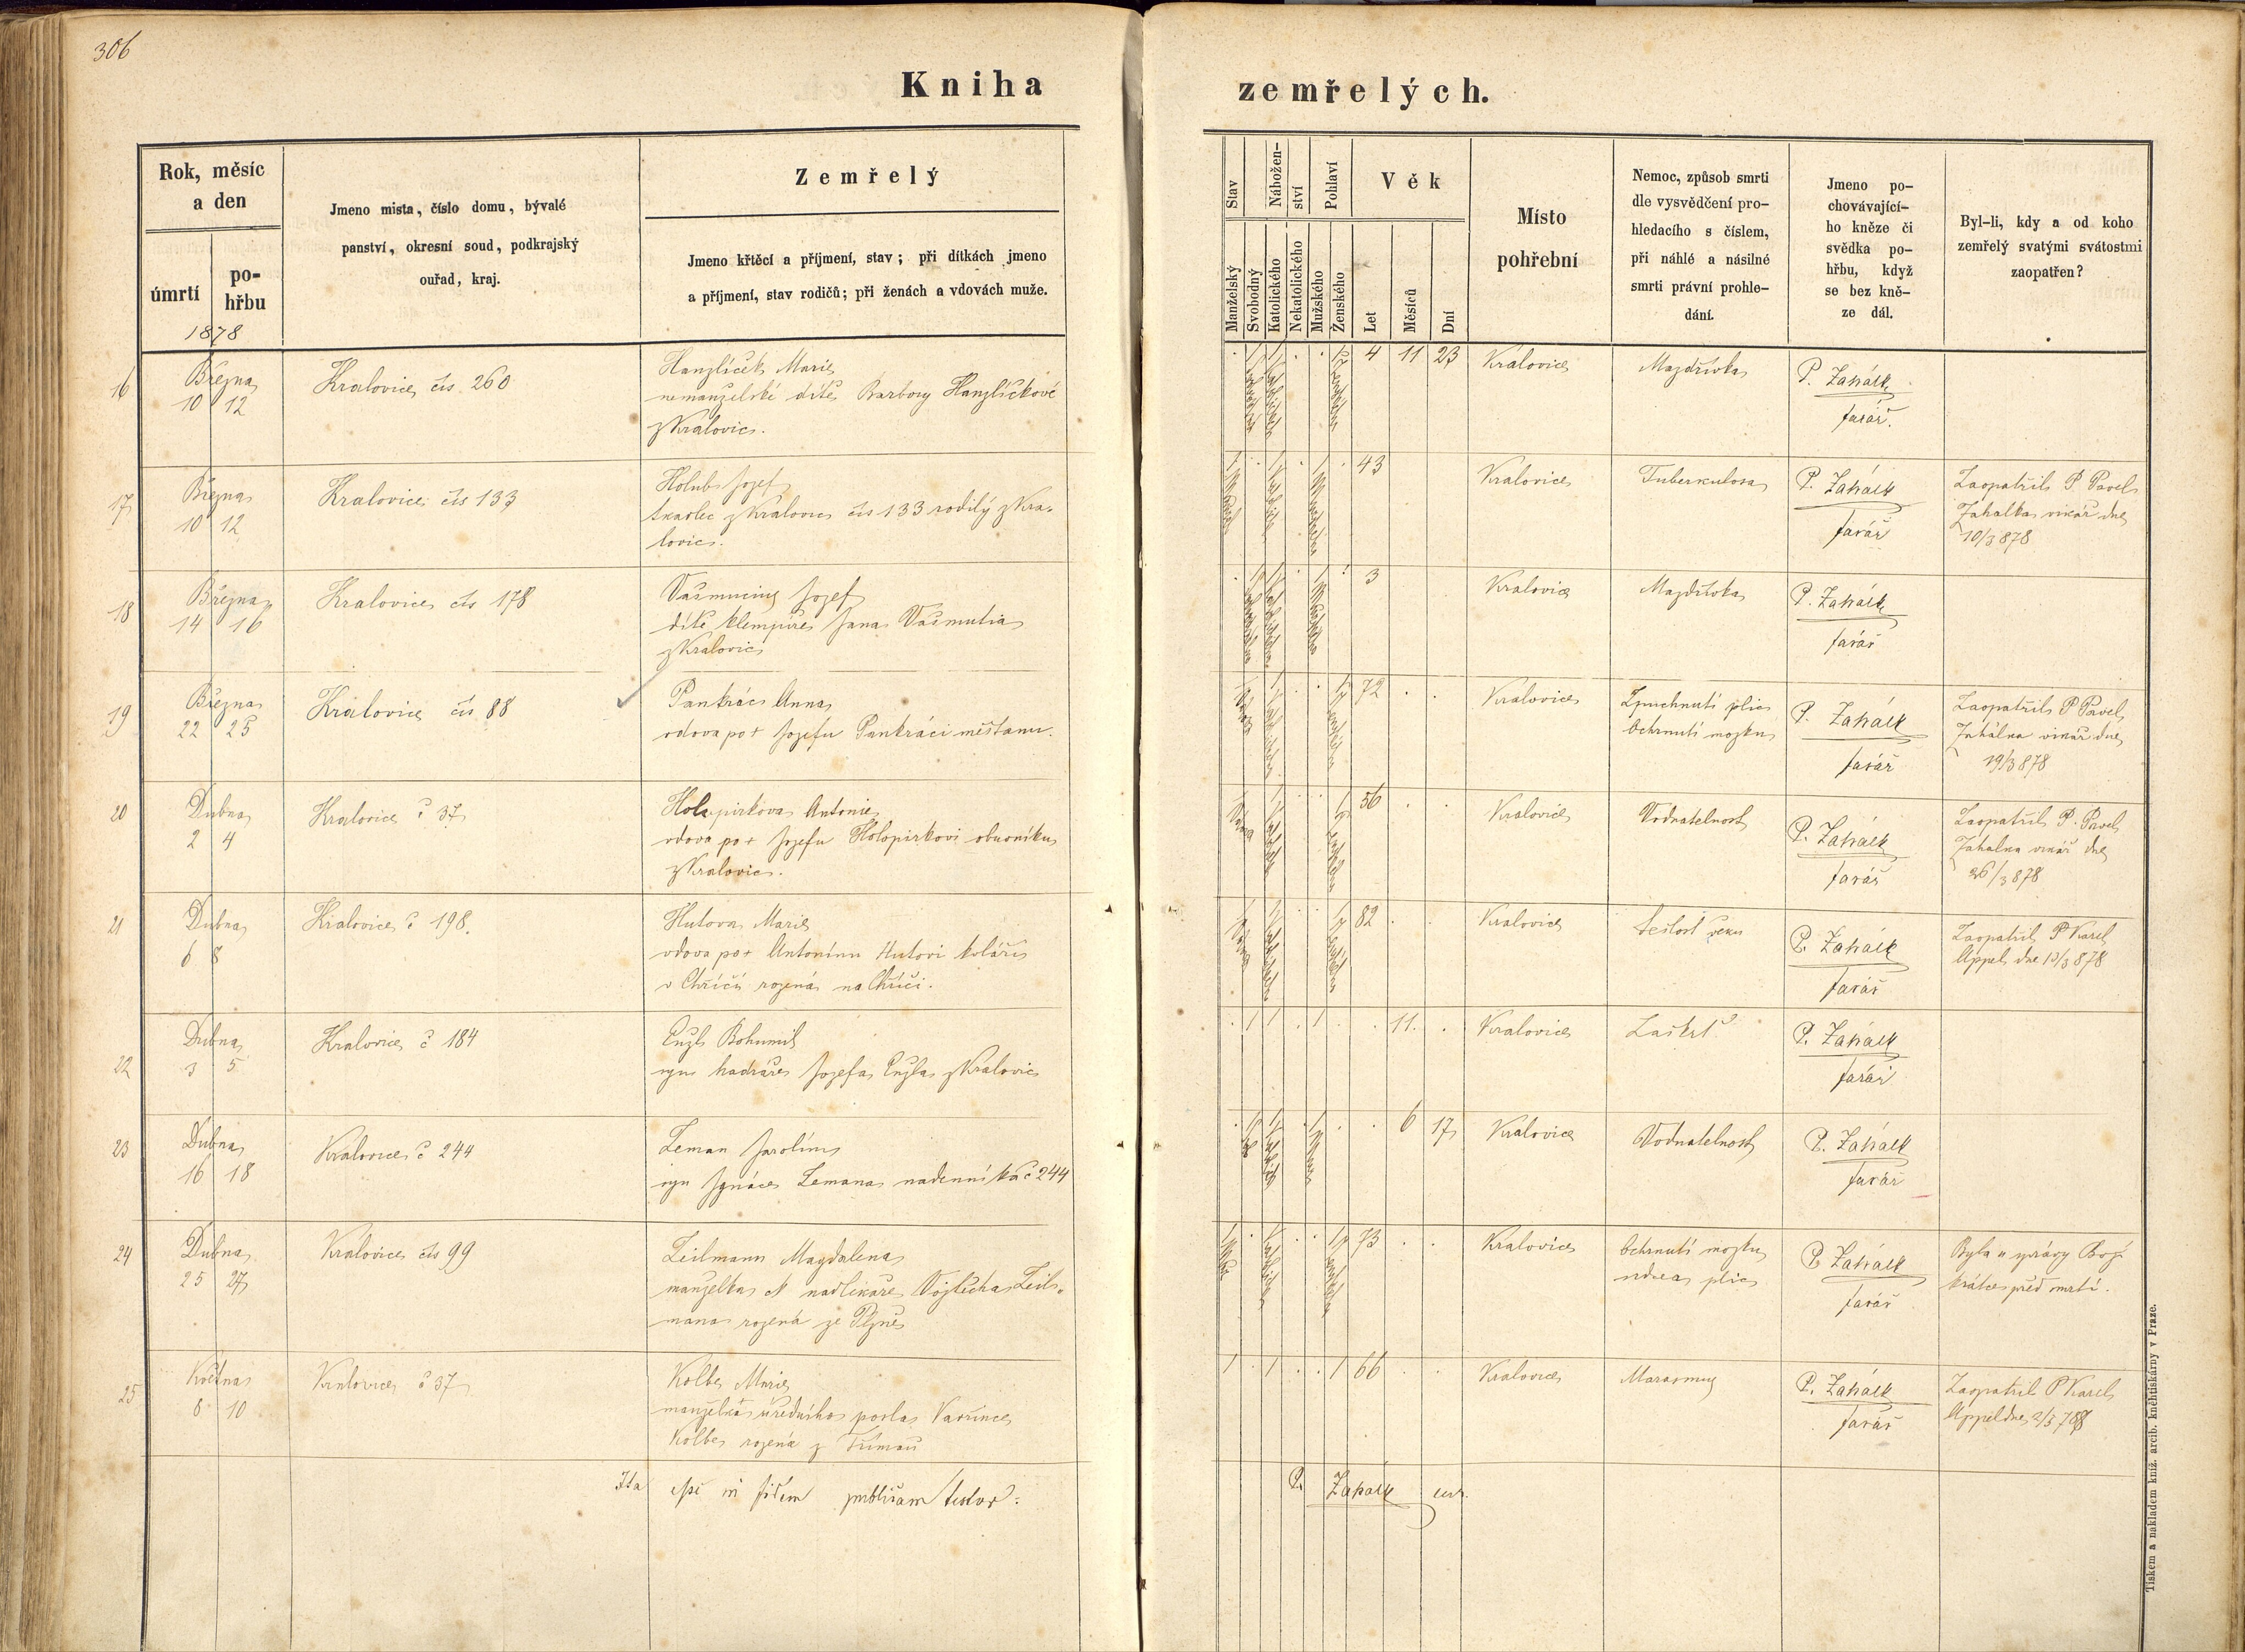 306
Kniha zemřelých.
Rok, měsíc a den
úmrtí
pohřbu
1878
Jmeno mista, číslo domu, bývalé
panství, okresní soud, podkrajský
ouřad, kraj.
Zemřelý
Jmeno křtěcí a příjmení, stav; při dítkách jmeno
a příjmení, stav rodičů; při ženách a vdovách muže.
Stav
Manželský
Svobodný
Nábožen-
ství
Katolického
Nekatolického
Pohlaví
Mužského
Ženského
Věk
Let
Měsíců
Dní
Místo
pohřební
Nemoc, způsob smrti
dle vysvědčení pro-
hledacího s číslem,
při náhlé a násilné
smrti právní prohle-
dání.
Jmeno po-
chovávající-
ho kněze či
svědka po-
hřbu, když
se bez kně-
ze dál.
Byl-li, kdy a od koho
zemřelý svatými svátostmi
zaopatřen?
16
Března
10 12
Kralovice čís. 260
Hanzlíček Marie
nemanzelské dítě Barbory Hanzlíčkové
z Kralovic.
4 11 23
Kralovice
P. Zahálk
farář.
17
Března
10 12
Kralovice čís 133
Holub Josef
tkadlec z Kralovic čís 133 rodilý z Kra-
lovic.
43
Kralovice
Tuberkulosa
P. Zahálk
farář
Zaopatřil P. Pavel
Zahalka vikář dne
10/3 878
18
Března
14 16
Kralovice čís 178
Josef
dítě klempíře Jana
z Kralovic
3
Kralovice
P. Zahálk
farář
19
Března
22 25
Kralovice čís 88
Pankrác Anna
vdova po + Josefu Pankráci měšťanu.
72
Kralovice
plic
ochrnutí mozku
P. Zahálk
farář
Zaopatřil P Pavel
Zahálka vikář dne
19/3 878
20
Dubna
2 4
Kralovice č 37
Holopirkova Antonie
vdova po + Josefu Holopirkovi obuvníku
z Kralovic.
56
Kralovice
Vodnatelnost
P. Zahálk
farář
Zaopatřil P. Pavel
Zahalka vikář dne
26/3 878
21
Dubna
6 8
Kralovice č 198.
Hutova Marie
vdova po + Antonínu Hutovi koláři
v Chříči rozená na Chříči.
82
Kralovice
sešlost věku
P. Zahálk
farář
Zaopatřil P Karel
Appel dne 878
22
Dubna
3 5
Kralovice č 184
Bohumil
syn hadráře Josefa z Kralovic
11
Kralovice
P. Zahálk
farář
23
Dubna
16 18
Kralovice č 244
Leman Jarolím
syn Ignáce Lemana nadenníka č 244
6 17
Kralovice
Vodnatelnost
P. Zahálk
farář
24
Dubna
25 27
Kralovice čís 99
Zeilmann Magdalena
manzelka nadlékaře Vojtěcha Zeil-
mana rozená ze Plzně
73
Kralovice
ochrnutí mozku
plic
P. Zahálk
farář
Byla u zprávy Boží
krátce před smrtí.
25
Května
8 10
Kralovice č 37
Kolbe Marie
manzelka úředního posla Vavřince
Kolbe rozená z
66
Kralovice
Marasmus
P. Zahálk
farář
Zaopatřil P Karel
Appel dne
Ita esse in fidem publicam testor:
P. Zahálk
Tiskem a nakladem kníž. arcib. kněhtiskárny v Praze.